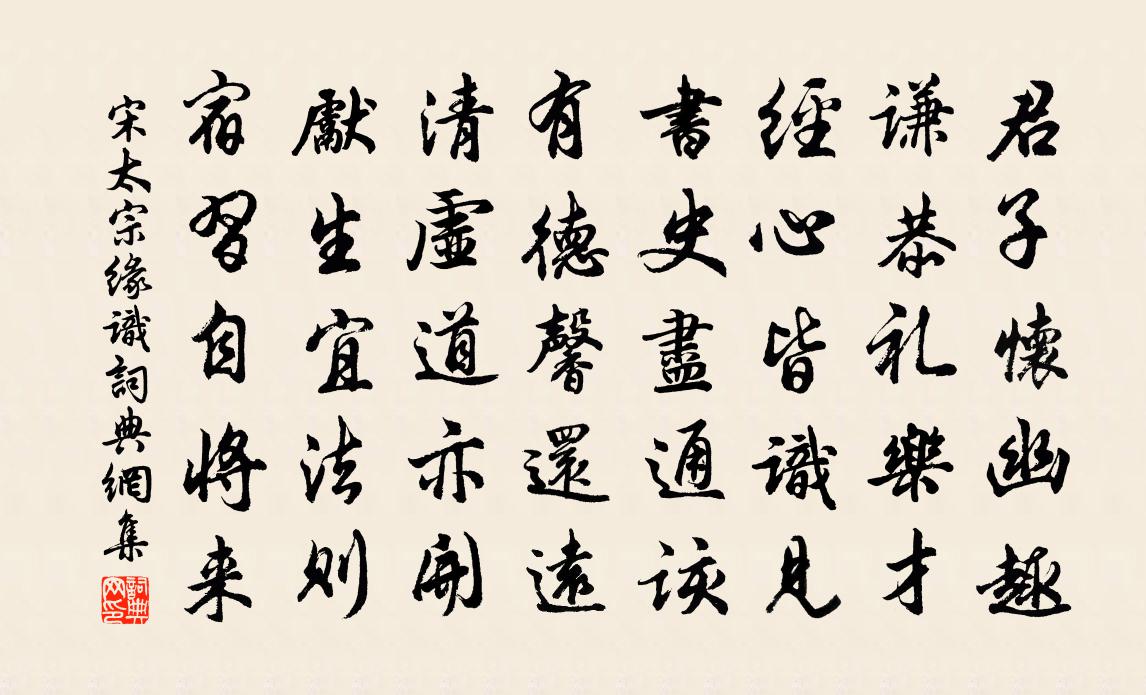 君子懷幽趣
謙恭礼樂才
經心皆識見
書史盡通該
有德馨還遠
清虛道亦開
獻生宜法則
宿習自將来
宋太宗緣識詞典網集
詞典网印